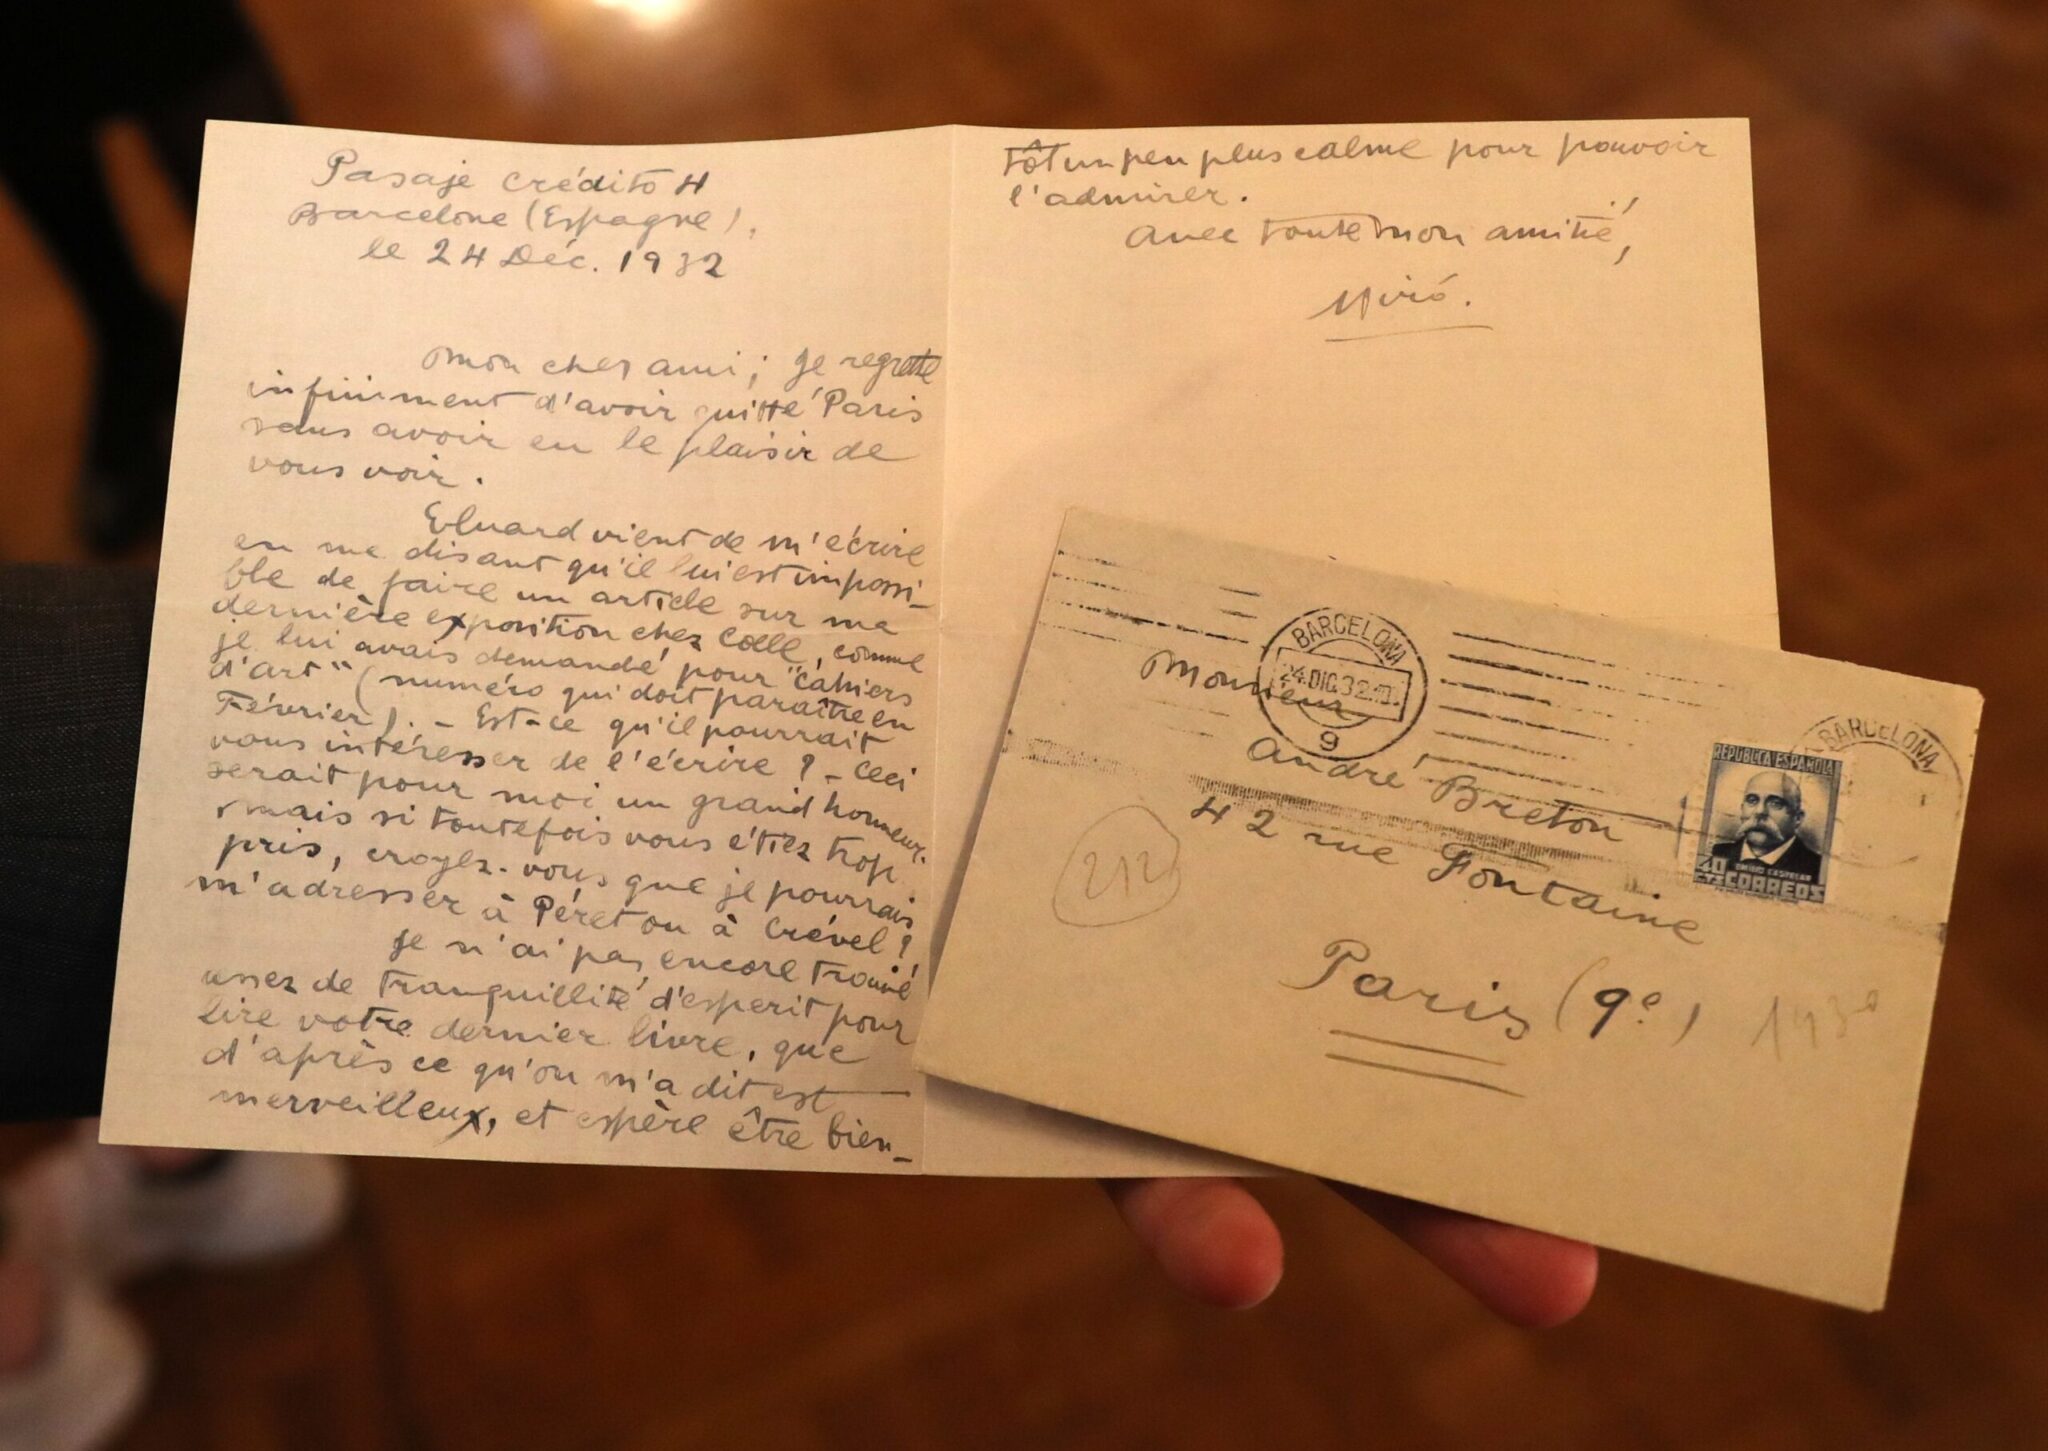 Pasaje Crédito 4
Barcelone (Espagne),
le 24 Déc. 1932
mon cher ami; je regrette
infiniment d'avoir quitté Paris
sans avoir eu le plaisir de
vous voir.
Eluard vient de m'écrire
en me disant qu'il lui est impossi-
ble de faire un article sur ma
dernière exposition chez Colle, comme
je lui avais demandé pour "Cahiers
d'art" (numéro qui doit paraître en
Février). - Est-ce qu'il pourrait
vous intéresser de l'écrire ? - Ceci
serait pour moi un grand honneur.
mais si toutefois vous étiez trop
pris, croyez-vous que je pourrais
m'adresser à Péret ou à Crével ?
Je n'ai pas encore trouvé
assez de tranquillité d'esperit pour
lire votre dernier livre, que
d'après ce qu'on m'a dit est
merveilleux, et espère être bien-
tôt un peu plus calme pour pouvoir
l'admirer.
avec toute mon amitié,
Miró.
BARCELONA
24.DIC.32
9
BARCELONA
REPUBLICA ESPAÑOLA
EMILIO CASTELAR
40 CTS CORREOS
Monsieur
André Breton
42 rue Fontaine
Paris (9e)
212